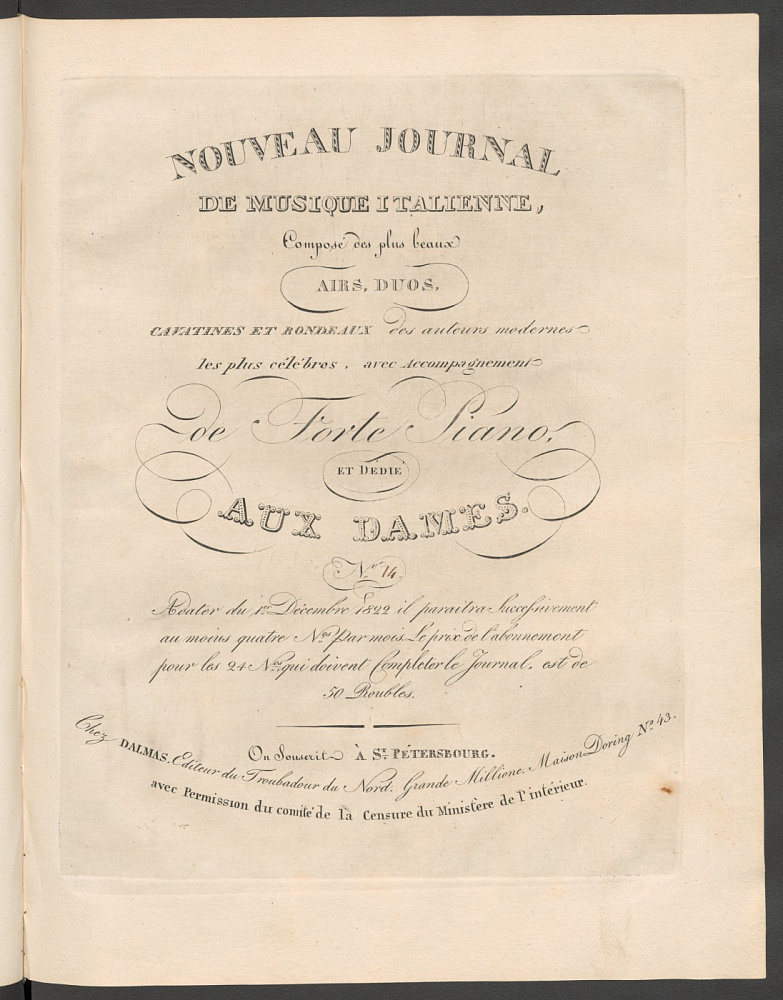 NOUVEAU JOURNAL
DE MUSIQUE ITALIENNE,
Composé des plus beaux
AIRS, DUOS,
CAVATINES ET RONDEAUX des auteurs modernes
les plus célèbres, avec Accompagnement
de Forte Piano,
ET DÉDIÉ
AUX DAMES.
N.º 14.
A dater du 1.er Décembre 1822 il paraitra Successivement
au moins quatre N.os Par mois. Le prix de l'abonnement
pour les 24 N.os qui doivent Completer le Journal, est de
50 Roubles.
On Souscrit À S.T PÉTERSBOURG.
Chez DALMAS, Editeur du Troubadour du Nord. Grande Millione, Maison Doring N.º 43.
avec Permission du comité de la Censure du Ministere de l'intérieur.